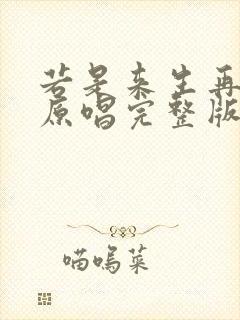 若是来生再
原唱完整版
喵呜菜